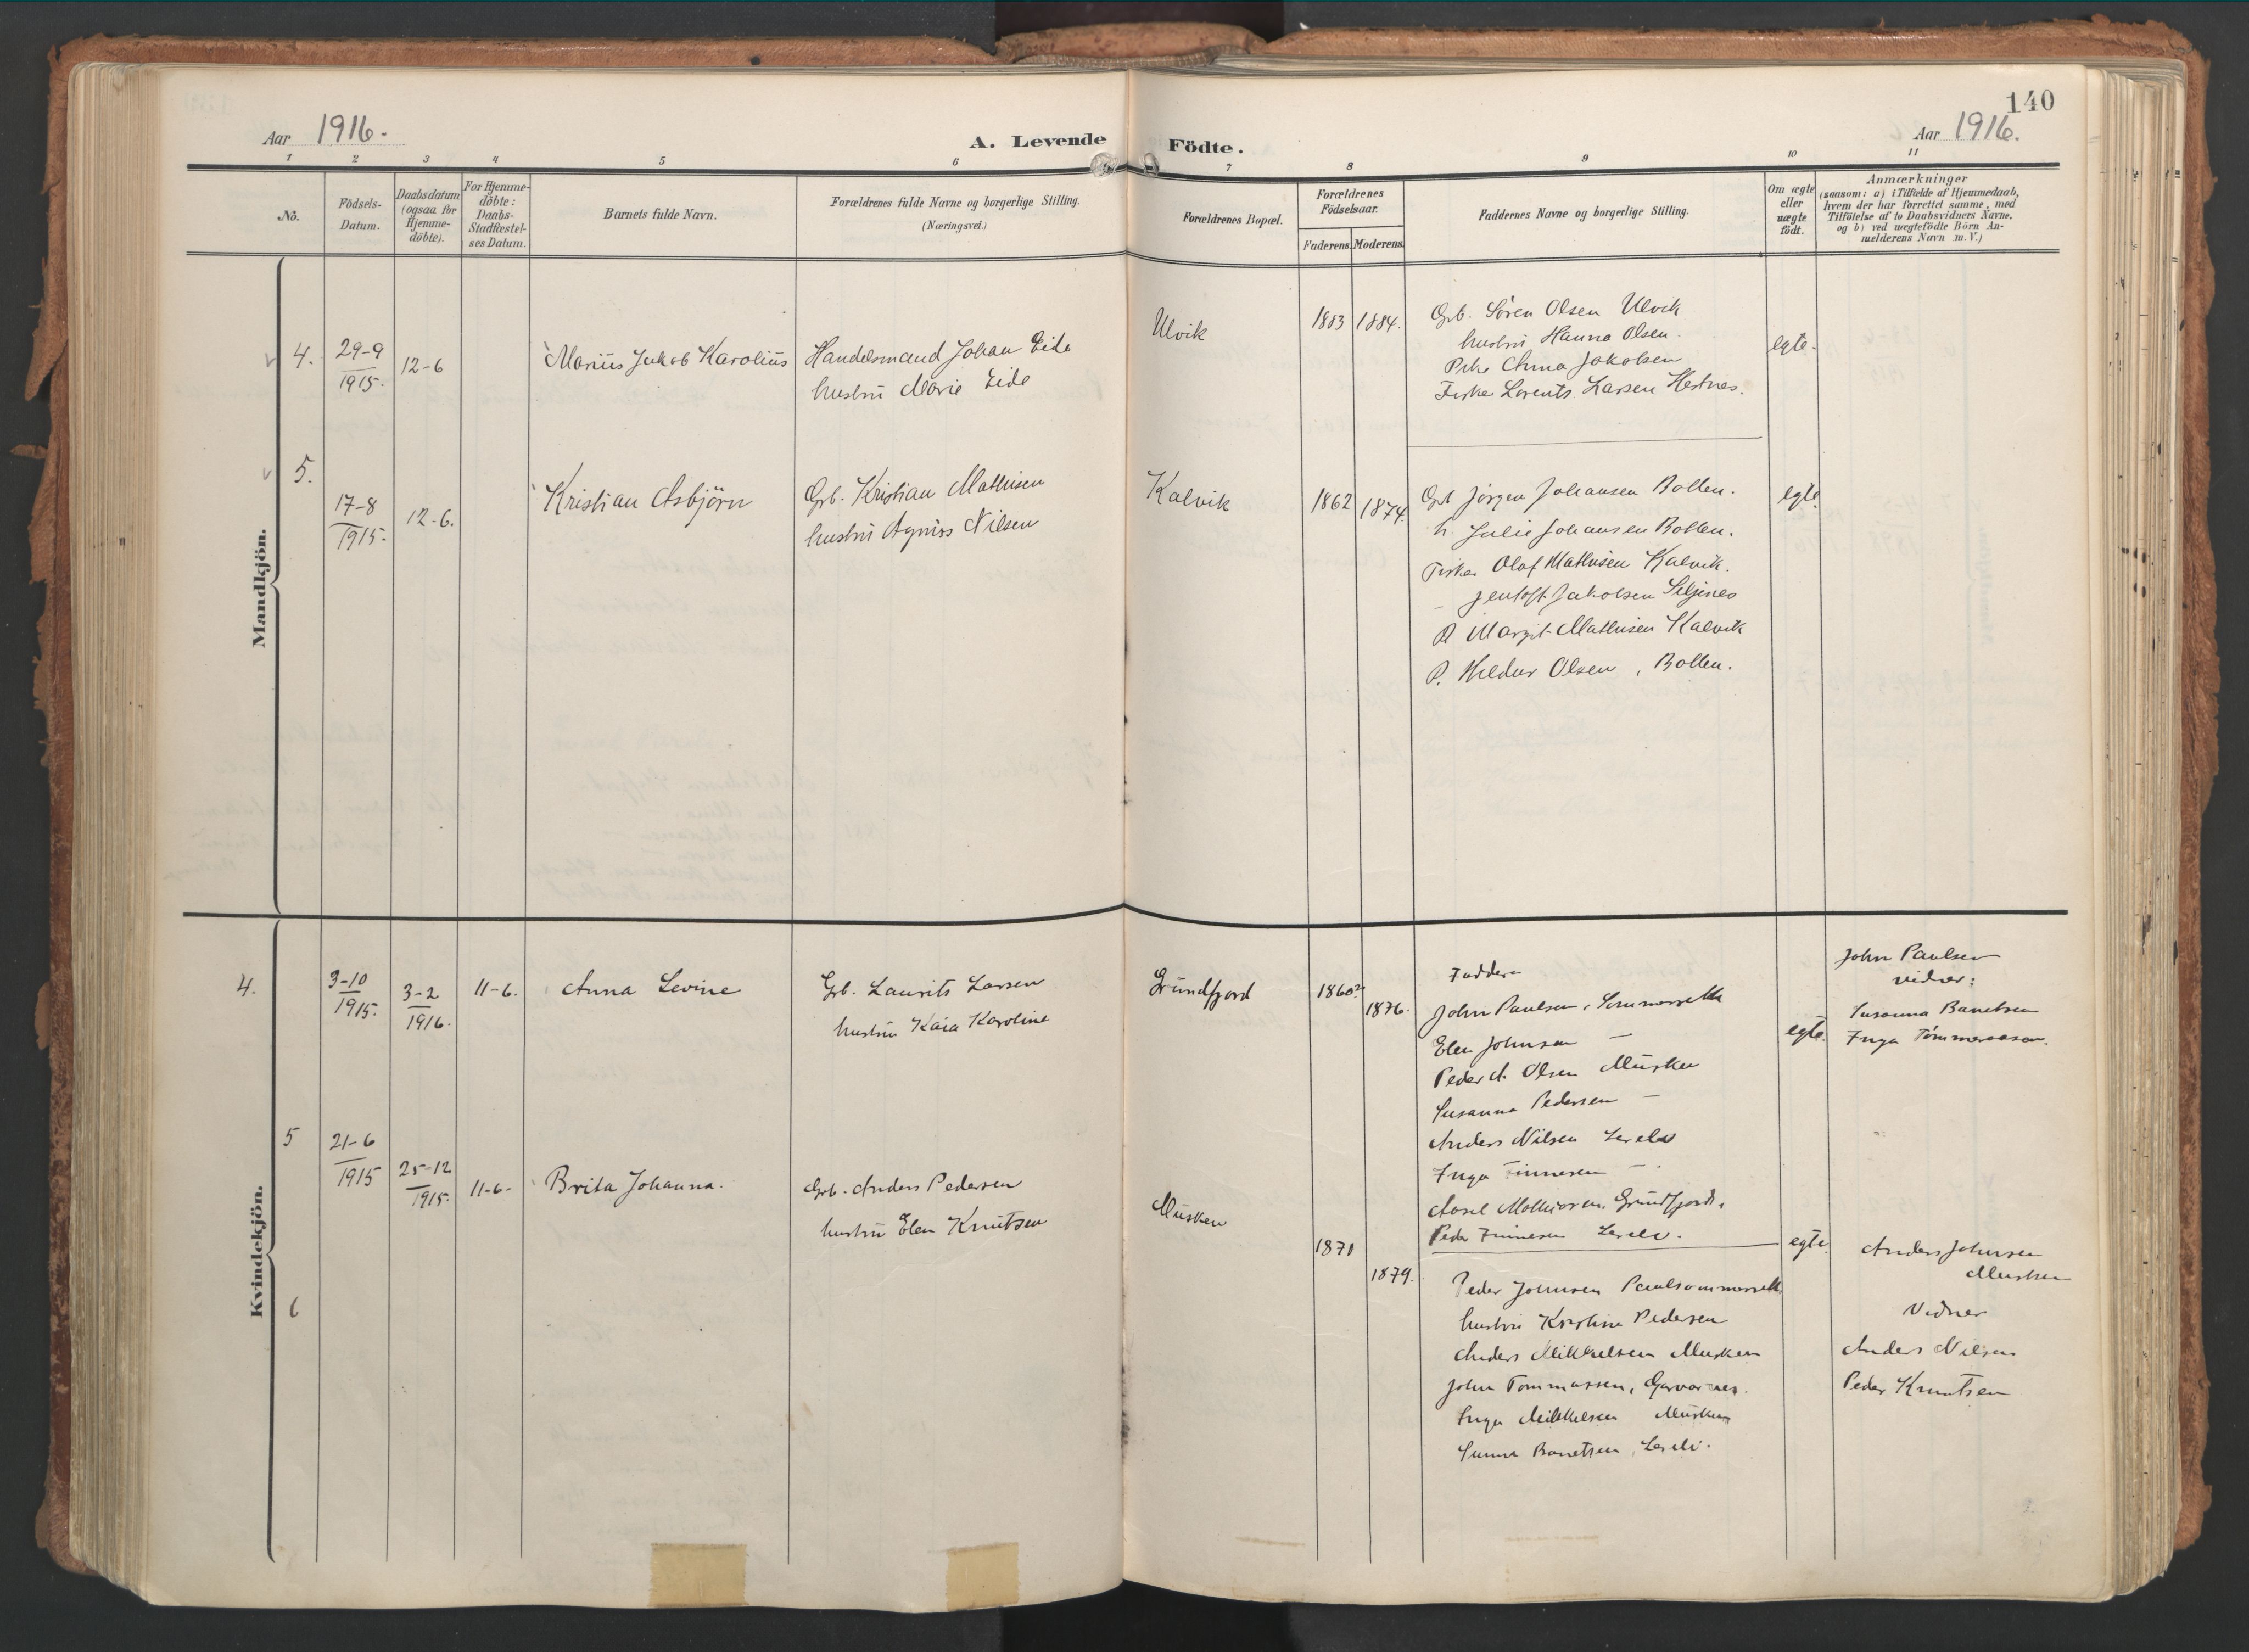 140
Aar 1916.
A. Levende Födte.
Aar 1916.
1 2 3 4 5 6 7 8 9 10 11
No.
Födsels-
Datum.
Daabsdatum
(ogsaa for
Hjemme-
döbte).
For Hjemme-
döbte:
Daabs-
Stadfæstel-
ses Datum.
Barnets fulde Navn.
Forældrenes fulde Navne og borgerlige Stilling.
(Næringsvei.)
Forældrenes Bopæl.
Forældrenes
Födselsaar.
Faderens. Moderens.
Faddernes Navne og borgerlige Stilling.
Om ægte
eller
uægte
födt.
Anmærkninger
(saasom: a) i Tilfælde af Hjemmedaab,
hvem der har forrettet samme, med
Tilföielse af to Daabsvidners Navne.
og b) ved uægtefödte Börn An-
melderens Navn m. V.)
Mandkjön.
4.
29-9
1915.
12-6
Marius Jakob Karolius
Handelsmand Johan Eide
hustru Marie Eide
Ulvik
1883 1884.
Grb. Sören Olsen Ulvik
hustru Hanna Olsen.
Pike Anna Jakobsen
Fisker Lorents Larsen Hestnes.
egte.
5.
17-8
1915.
12-6.
Kristian Asbjörn
Grb. Kristian Mathisen
hustru Agniss Nilsen
Kalvik
1862 1874.
Grb Jörgen Johansen Botten.
h. Julie Johansen Botten.
Fisker Olaf Mathisen Kalvik.
– Jentoft Jakobsen Siljenes
P. Margit Mathisen Kalvik
P. Hildur Olsen, Botten.
egte.
Kvindekjön.
4.
3-10
1915.
3-2
1916.
11-6.
Anna Levine
Grb. Laurits Larsen
hustru Kaia Karoline
Grundfjord
1860?
1876.
Faddere
John Paulsen, Sommersetth
Elen Johnsen –
Peder A. Olsen Musken
Susanna Pedersen –
Anders Nilsen
Inga Finnesen –
Aksel Mathiasen, Grundfjord.
Peder Finnesen
egte.
John Paulsen
vidner:
Susanna Banetsen
Inga Tömmerosen.
5
21-6
1915
25-12
1915.
11-6-
Brita Johanna.
Grb. Anders Pedersen
hustru Elen Knutsen
Musken
1871
1879.
Peder Johnsen Paulsommersetth
hustru Kristine Pedersen
Anders Mikkelsen Musken
John Tommassen,
Inga Mikkelsen Musken
Banetsen
egte.
Anders Johnsen
Musken
Vidner
Anders Nilsen
Peder Knutsen
6